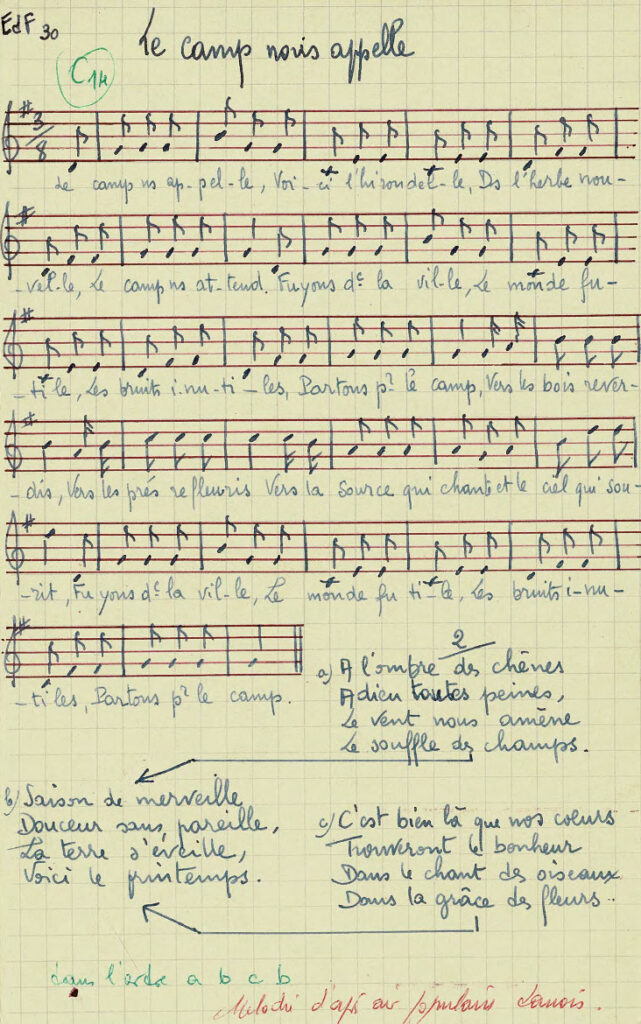 EdF 30
Le camp nous appelle
C14
3/8
Le camp ns ap-pel-le, Voi-ci l'hirondel-le, Ds l'herbe nou-
-vel-le, Le camp ns at-tend. Fuyons dc la vil-le, Le monde fu-
-ti-le, Les bruits i-nu-ti-les, Partons pr le camp, Vers les bois rever-
-dis, Vers les prés refleuris Vers la source qui chante et le ciel qui sou-
-rit, Fuyons dc la vil-le, Le monde fu ti-le, Les bruits i-nu-
-ti les, Partons pr le camp.
2
a) A l'ombre des chênes
Adieu toutes peines,
Le vent nous amène
Le souffle des champs.
b) Saison de merveille
Douceur sans pareille,
La terre s'éveille,
Voici le printemps.
c) C'est bien là que nos coeurs
Trouveront le bonheur
Dans le chant des oiseaux
Dans la grâce des fleurs..
dans l'ordre a b c b
Melodie d'apr air populaire danois.